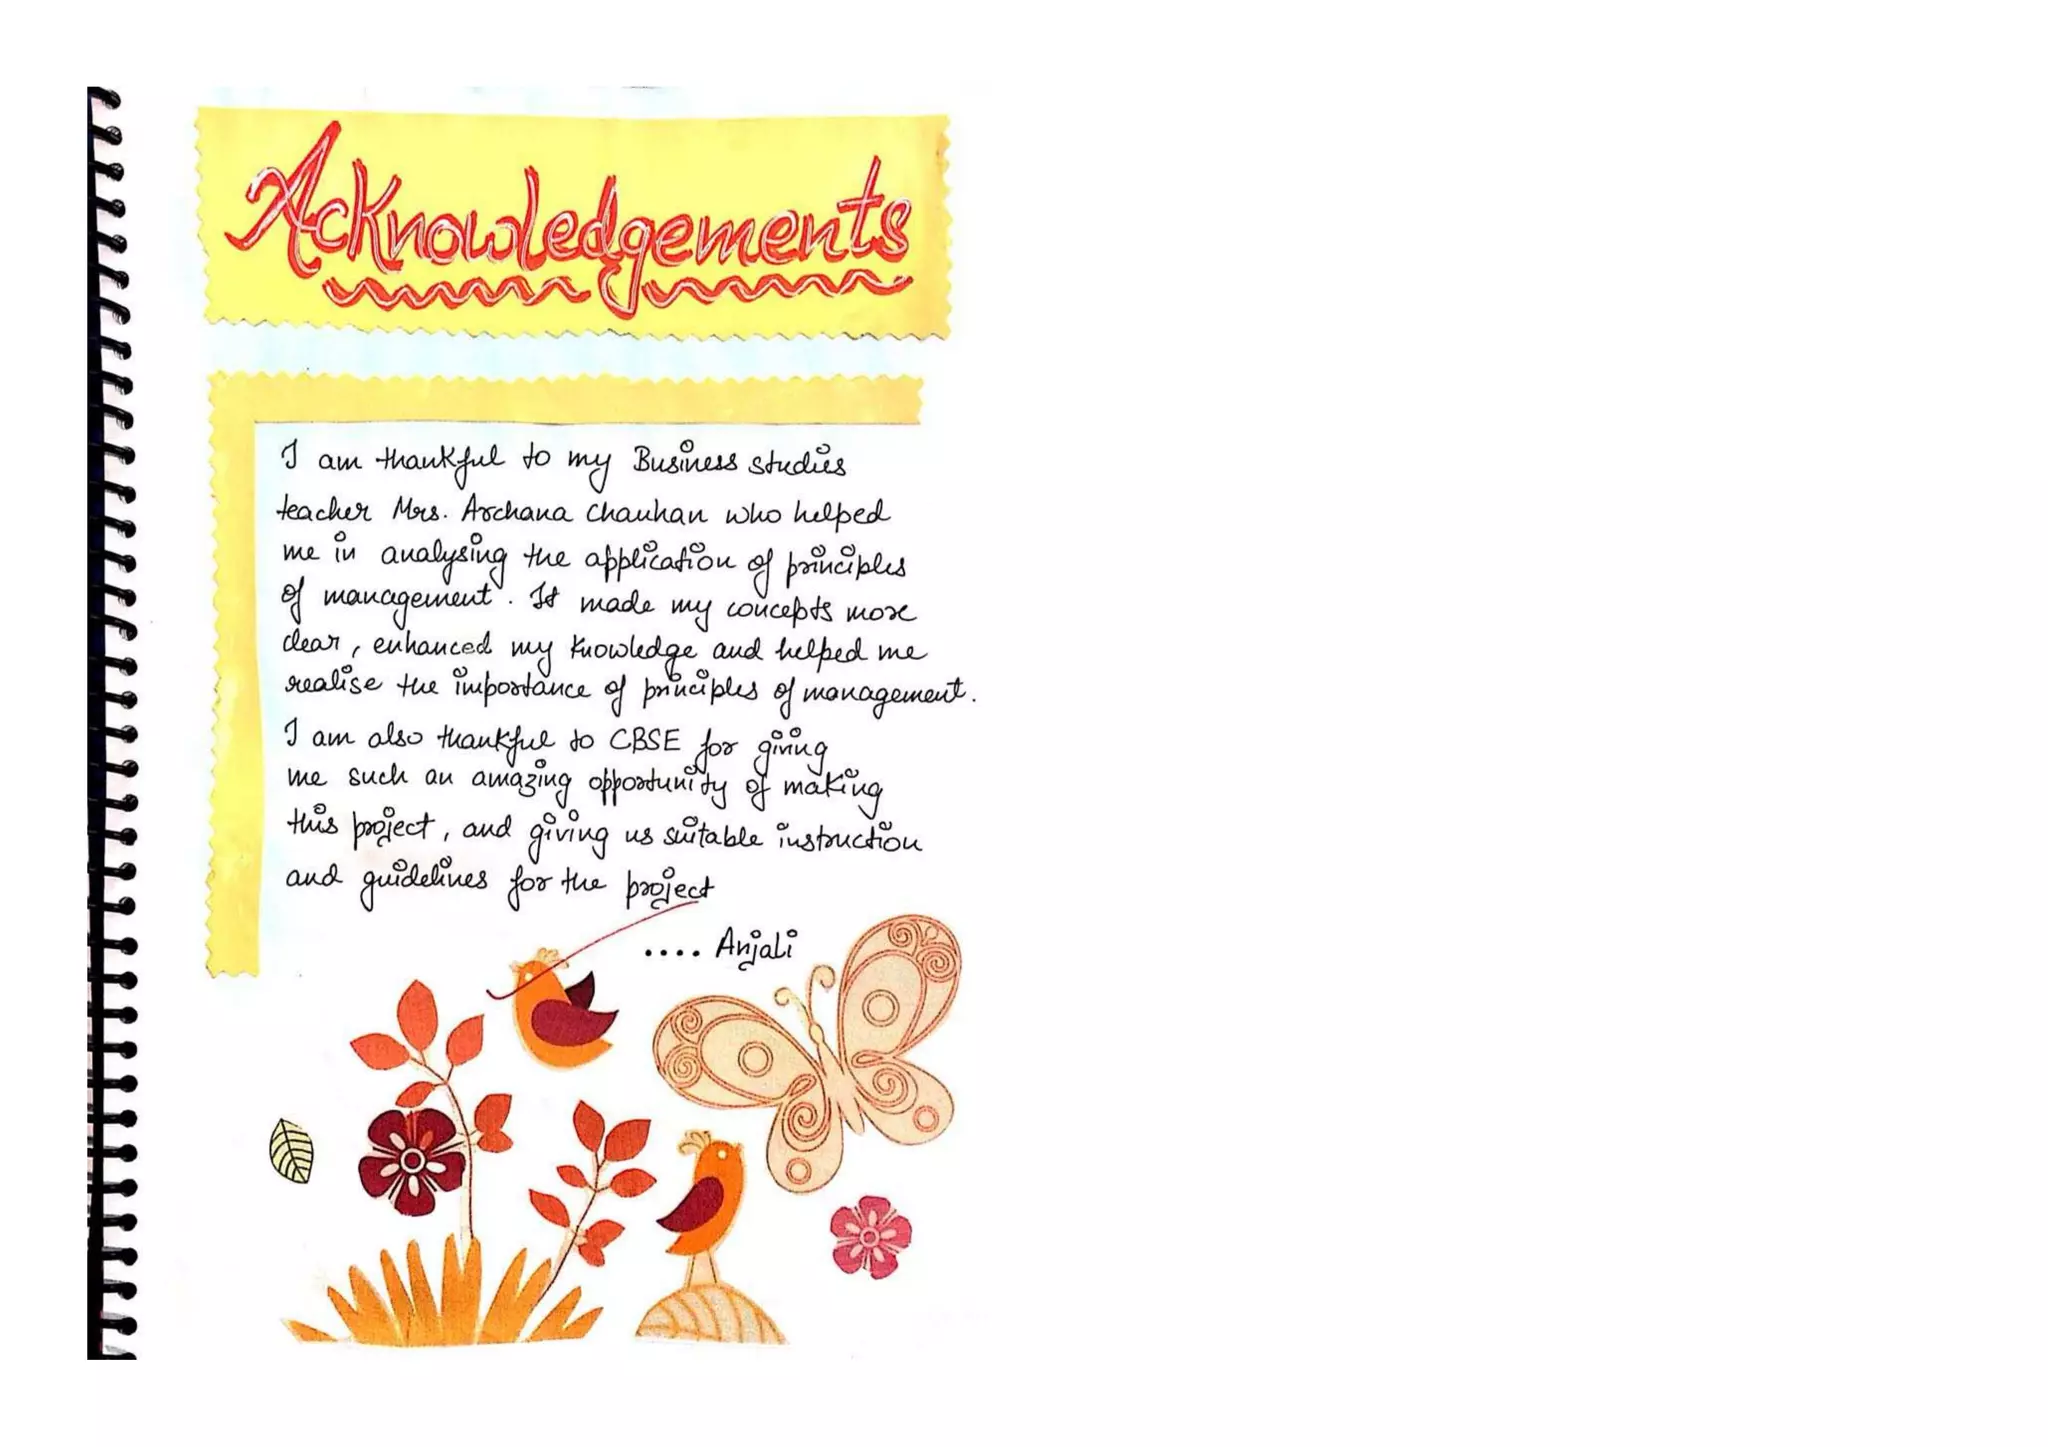 Acknowledgements
I am thankful to my Business studies
teacher Mrs. Archana Chauhan who helped
me in analysing the application of principles
of management. It made my concepts more
clear, enhanced my knowledge and helped me
realise the importance of principles of management.
I am also thankful to CBSE for giving
me such an amazing opportunity of making
this project, and giving us suitable instruction
and guidelines for the project
.... Anjali